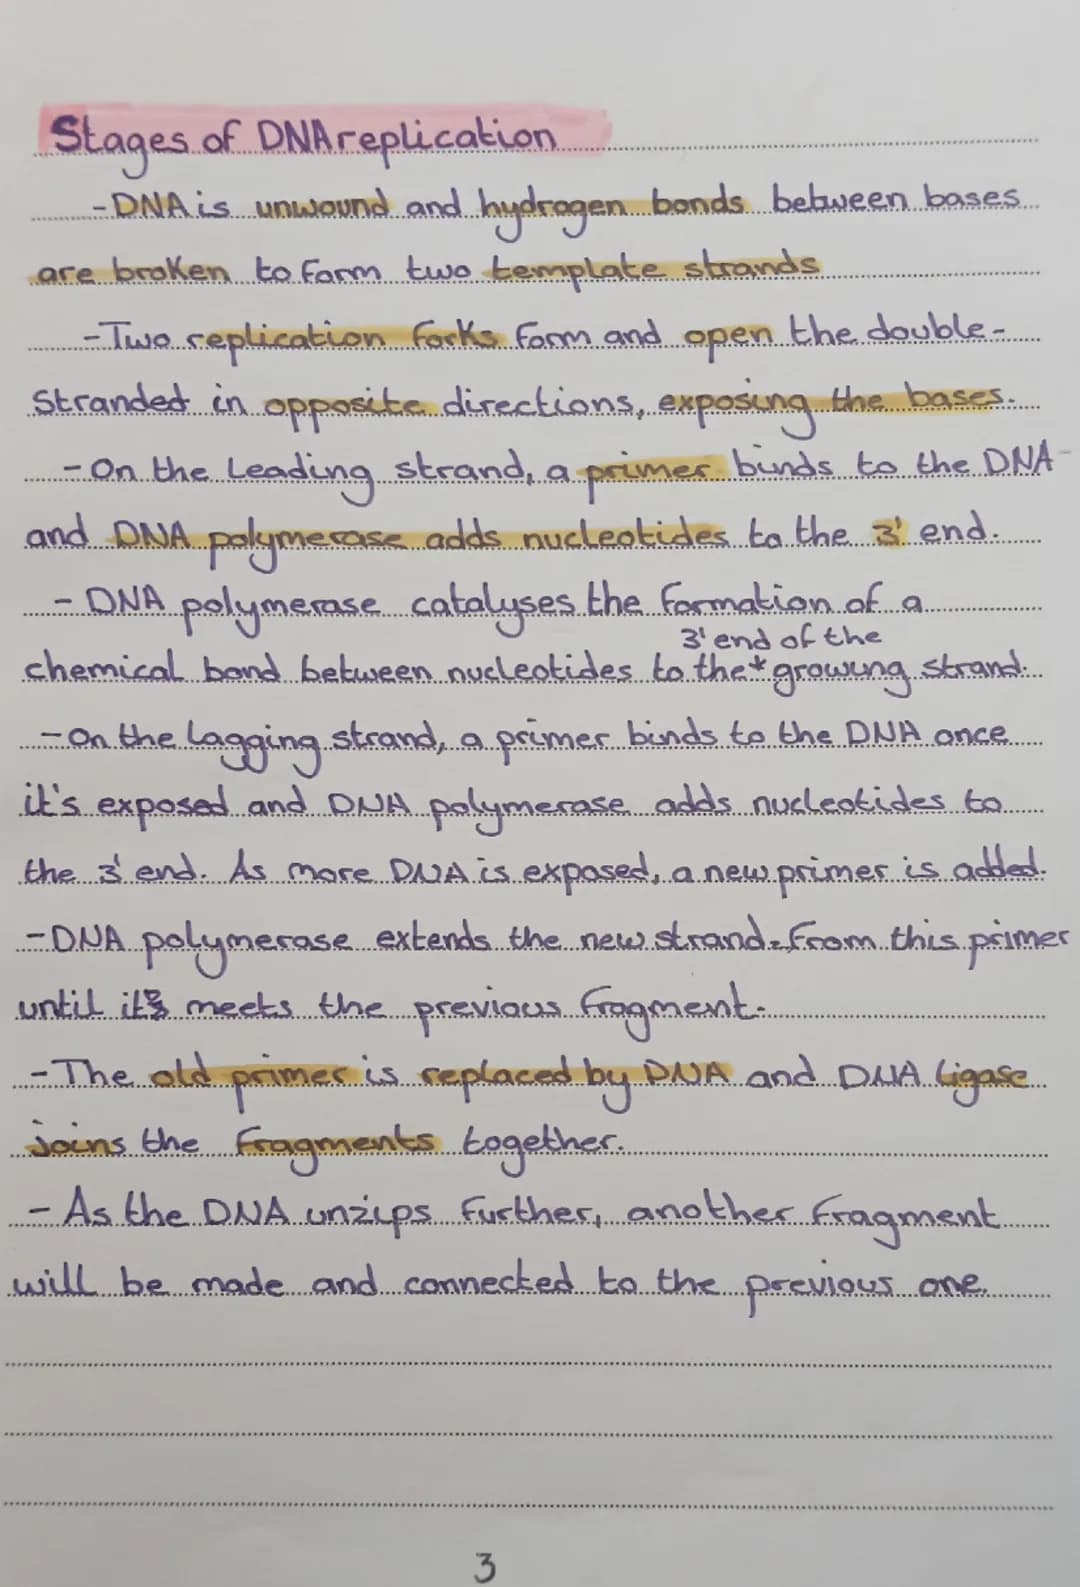 Stages of DNA replication
- DNA is unwound and hydrogen bonds between bases
are broken to form two template strands
- Two replication forks form and open the double-
stranded in opposite directions, exposing the bases.
- On the leading strand, a primer binds to the DNA
and DNA polymerase adds nucleotides to the 3' end.
- DNA polymerase catalyses the formation of a
3' end of the
chemical bond between nucleotides to the * growing strand.
- On the lagging strand, a primer binds to the DNA once
it's exposed and DNA polymerase adds nucleotides to
the 3' end. As more DNA is exposed, a new primer is added.
- DNA polymerase extends the new strand from this primer
until it meets the previous fragment.
- The old primer is replaced by DNA and DNA ligase
joins the fragments together.
- As the DNA unzips further, another fragment
will be made and connected to the previous one.
3